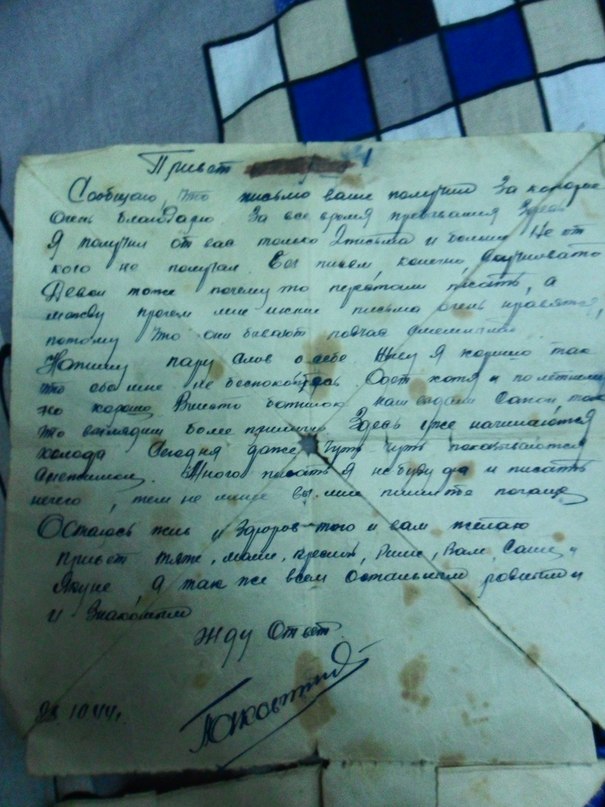 Привет
Сообщаю, что письмо ваше получил За которое
Очень благодарю За все время пребывания Здесь
Я получил от вас только 2 письма и более Не от
кого не получал. Без писем, конечно скучновато
Девки тоже почему то перестали писать, а
между прочем мне ихние письма очень нравятся,
потому что они бывают подчас
Напишу пару слов о себе. Живу я хорошо так
что обо мне не беспокойтесь Одет хотя и по летнему
но хорошо Вместо ботинок нам выдали Сапоги так
что выглядим более прилично Здесь уже начинаются
холода Сегодня даже чуть чуть показывается
Много писать я не буду да и писать
нечего, тем не мение вы мне пишите почаще
Остаюсь жив и Здоров того и вам желаю
привет тяте, маме, Вале, Саше,
а так же всем Остальным родным
и Знакомым
Жду Ответ.
10 44г